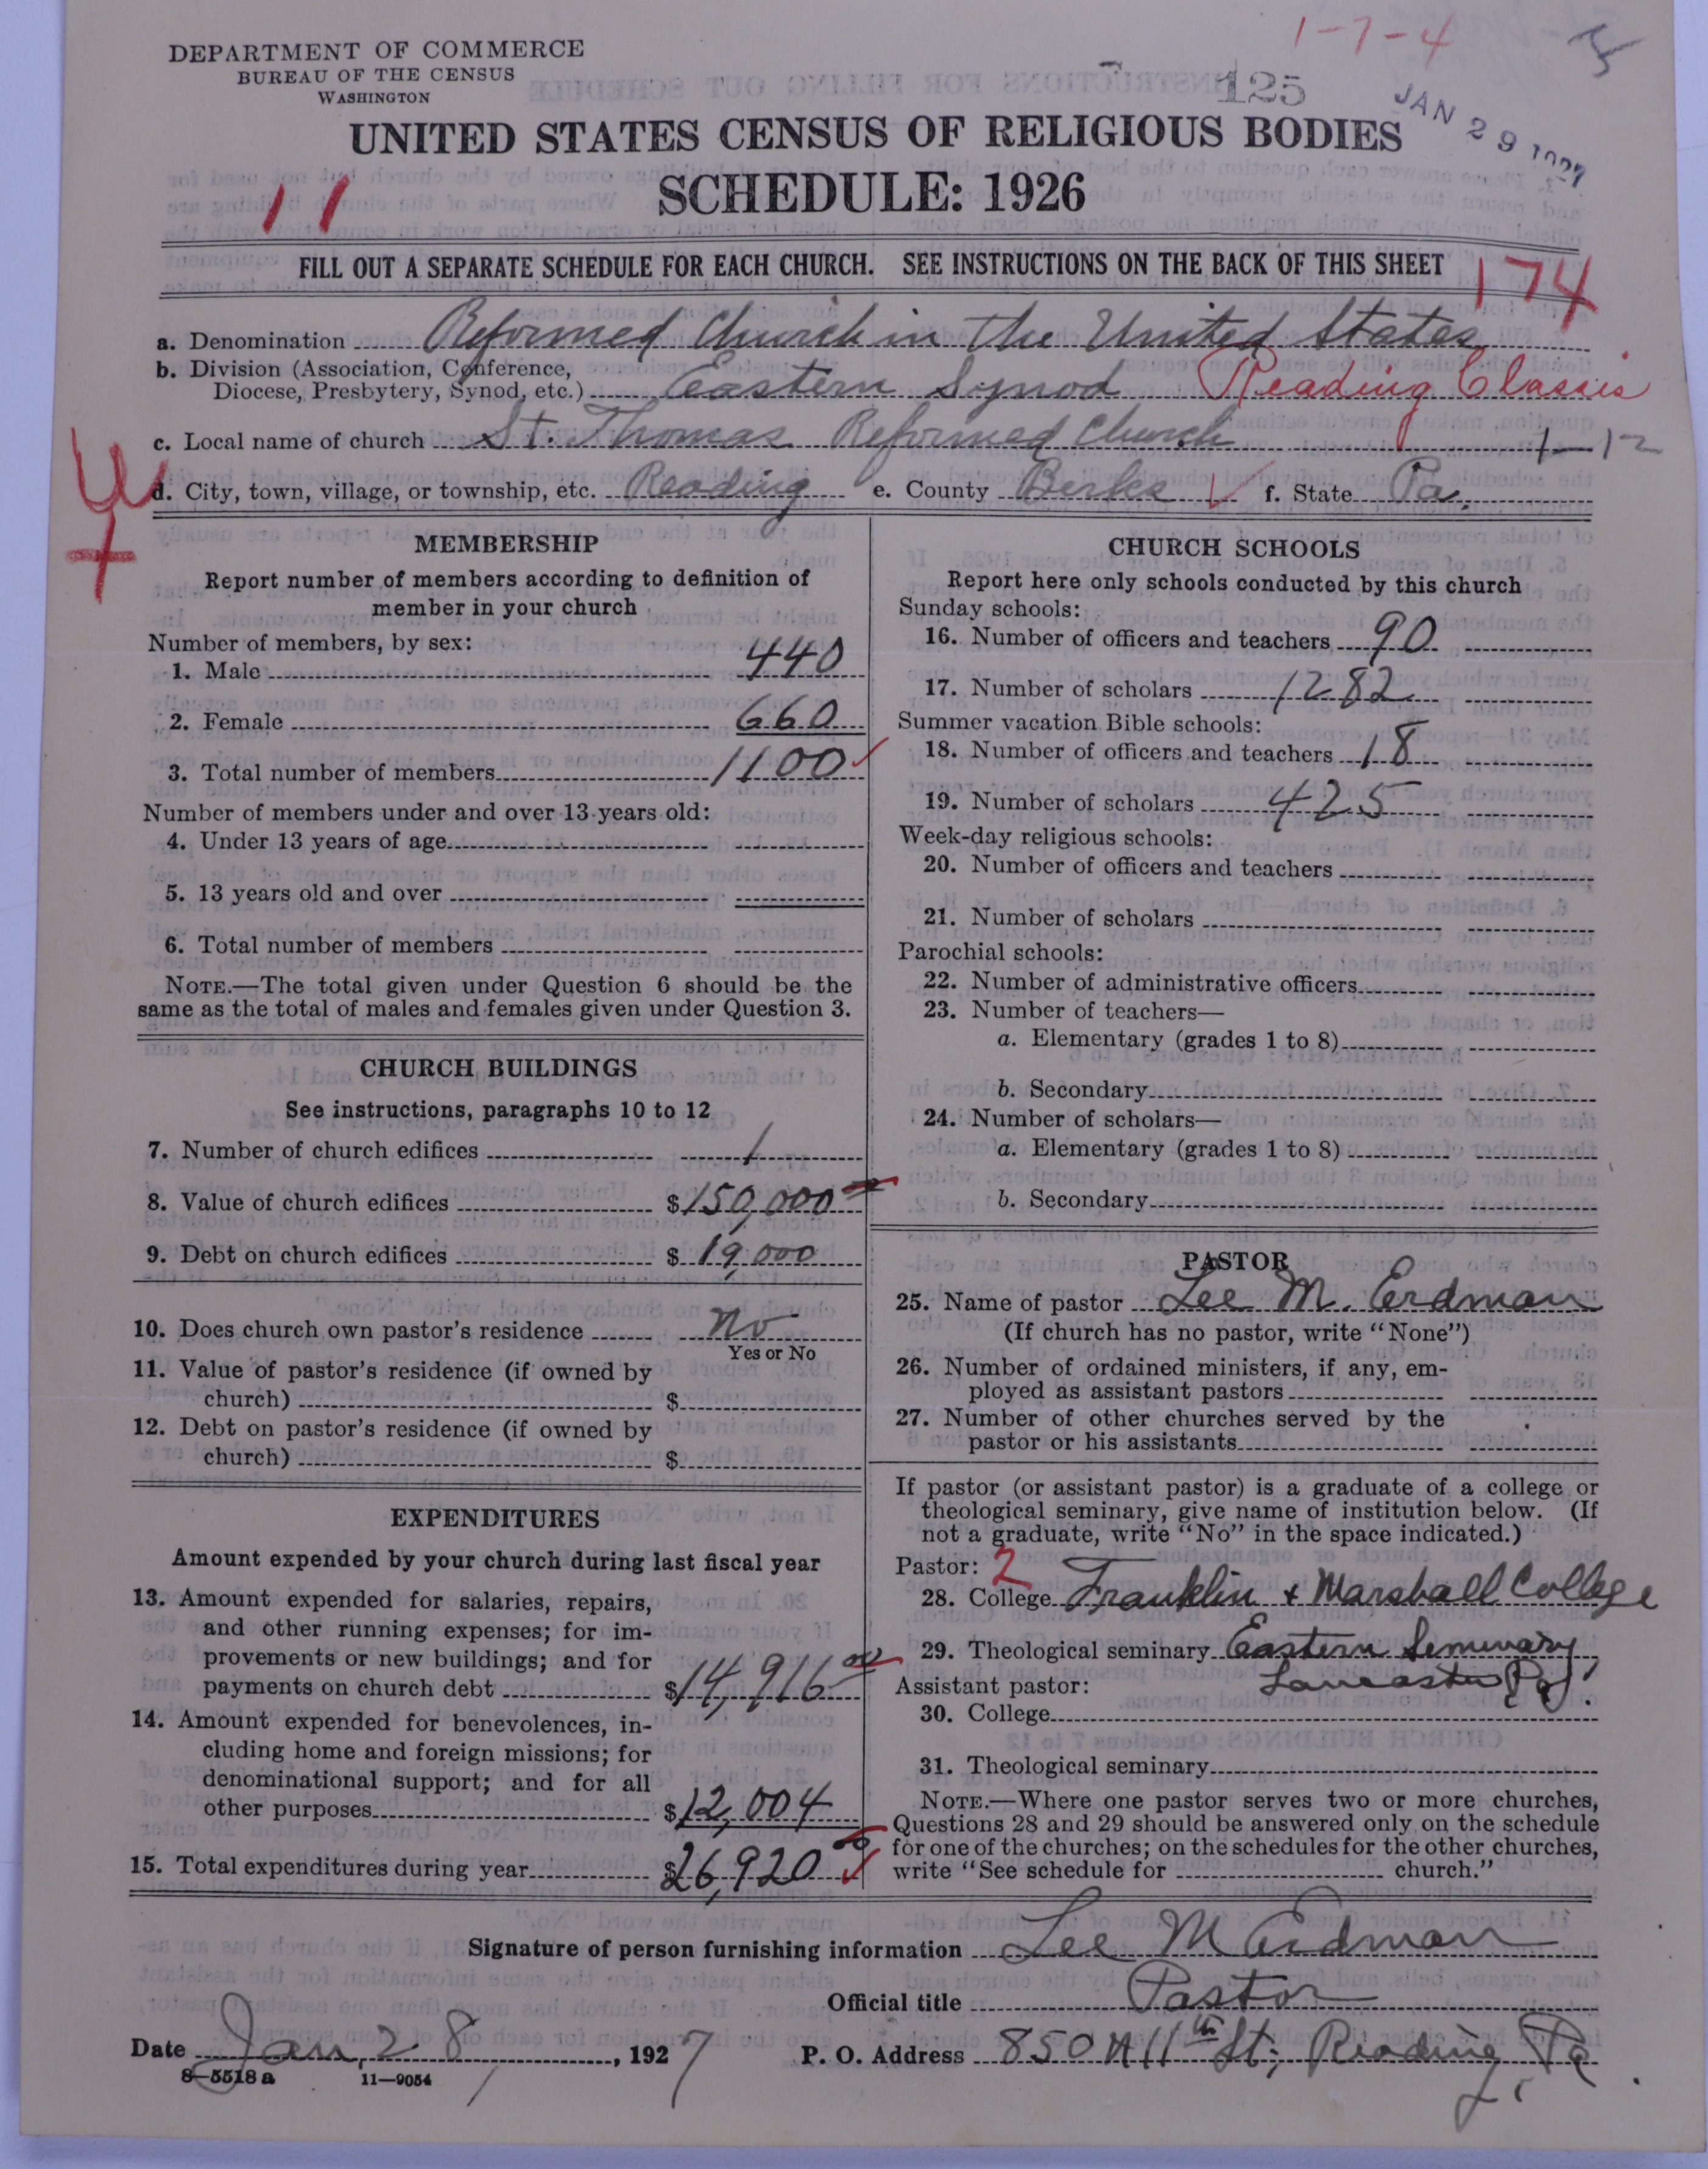 1-7-4
DEPARTMENT OF COMMERCE
BUREAU OF THE CENSUS
WASHINGTON
125
JAN 29 1927
UNITED STATES CENSUS OF RELIGIOUS BODIES
SCHEDULE: 1926
11
FILL OUT A SEPARATE SCHEDULE FOR EACH CHURCH. SEE INSTRUCTIONS ON THE BACK OF THIS SHEET
174
a. Denomination Reformed Church in the United States
b. Division (Association, Conference,
Diocese, Presbytery, Synod, etc.) Eastern Synod Reading Classis
c. Local name of church St. Thomas Reformed Church
d. City, town, village, or township, etc. Reading e. County Berks f. State Pa.
MEMBERSHIP
Report number of members according to definition of
member in your church
Number of members, by sex:
1. Male 440
2. Female 660
3. Total number of members 1100
Number of members under and over 13 years old:
4. Under 13 years of age
5. 13 years old and over
6. Total number of members
NOTE.—The total given under Question 6 should be the
same as the total of males and females given under Question 3.
CHURCH BUILDINGS
See instructions, paragraphs 10 to 12
7. Number of church edifices 1
8. Value of church edifices $150,000
9. Debt on church edifices $19,000
10. Does church own pastor's residence no
Yes or No
11. Value of pastor's residence (if owned by
church) $
12. Debt on pastor's residence (if owned by
church) $
EXPENDITURES
Amount expended by your church during last fiscal year
13. Amount expended for salaries, repairs,
and other running expenses; for im-
provements or new buildings; and for
payments on church debt $14,916 00
14. Amount expended for benevolences, in-
cluding home and foreign missions; for
denominational support; and for all
other purposes $12,004
15. Total expenditures during year $26,920 00
CHURCH SCHOOLS
Report here only schools conducted by this church
Sunday schools:
16. Number of officers and teachers 90
17. Number of scholars 1282
Summer vacation Bible schools:
18. Number of officers and teachers 18
19. Number of scholars 425
Week-day religious schools:
20. Number of officers and teachers
21. Number of scholars
Parochial schools:
22. Number of administrative officers
23. Number of teachers—
a. Elementary (grades 1 to 8)
b. Secondary
24. Number of scholars—
a. Elementary (grades 1 to 8)
b. Secondary
PASTOR
25. Name of pastor Lee M. Erdman
(If church has no pastor, write "None")
26. Number of ordained ministers, if any, em-
ployed as assistant pastors
27. Number of other churches served by the
pastor or his assistants
If pastor (or assistant pastor) is a graduate of a college or
theological seminary, give name of institution below. (If
not a graduate, write "No" in the space indicated.)
Pastor: 2
28. College Franklin + Marshall College
29. Theological seminary Eastern Seminary
Lancaster Pa.
Assistant pastor:
30. College
31. Theological seminary
NOTE.—Where one pastor serves two or more churches,
Questions 28 and 29 should be answered only on the schedule
for one of the churches; on the schedules for the other churches,
write "See schedule for church."
Signature of person furnishing information Lee M Erdman
Official title Pastor
Date Jan, 28, 1927 P. O. Address 850 N 11th St; Reading, Pa.
8—5518a 11—9054